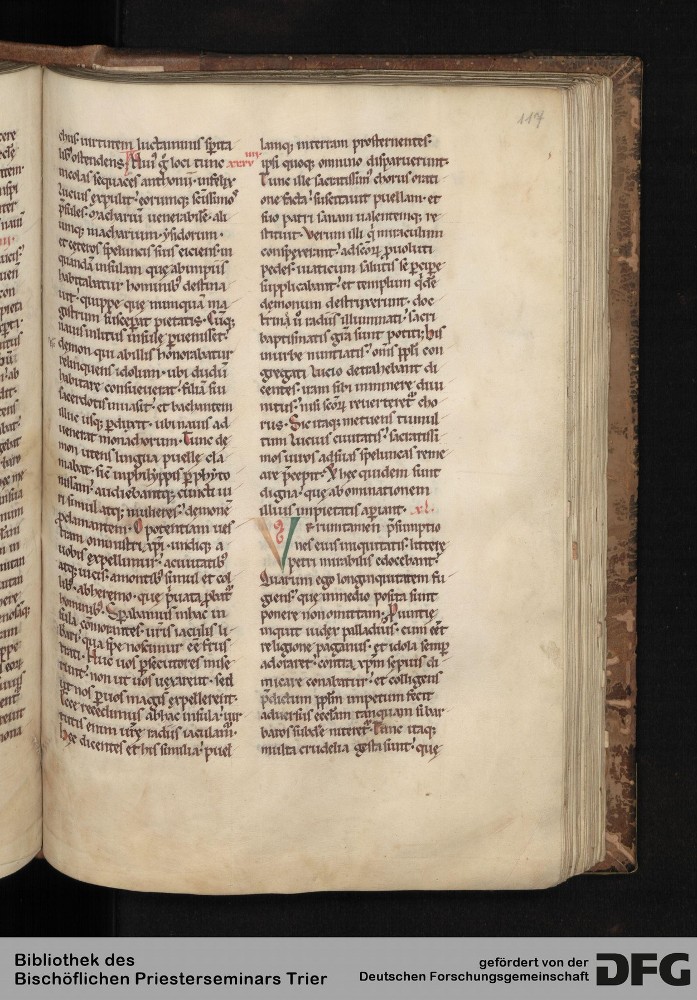 117
chus. uirtutem luctaminis sp̄ita
lib; ostendens. Huiꝰ g̃ loci tunc xxxviiii
nicolai sequaces anthonii. infelix
lucius expulit. eorumq; sc̄issimos
p̄sules. macharium uenerabilē. ali
umq; macharium. ysidorum.
et ceteros speluncis suis eiciens. in
quandā insulam que ab impiis
habitabatur hominib; destina
uit. quippe que nunquā ma
gistrum susceperat pietatis. Cūq;
nauis militūs insulē puenisset.
demon qui ab illis honorabatur
relinquens idolum. ubi dudū
habitare consueuerat. filiā sui
sacerdotis inuasit. et bachantem
illuc usq; pduxit. ubi nauis ad
uenerat monachorum. Tunc de
mon utens lingua puelle. cla
mabat. sic in philippis pphyto
nissam. audiebantq; cuncti ui
ri simul atq; mulieres. demonē
pclamantem. O potentiam ues
tram o ministri xp̄i. undiq; a
uobis expellimur. a ciuitatib;
atq; uicis. a montib; simul et col
lib;. ab heremo. que priuata pbat̃
hominib;. Sperabamus in hac in
sula cōmorantes. uris iaculis li
bari. qua spe noscimur ēē frus
trati. Huc uos psecutores mise
runt. non ut uos uexarent. sed
ut nos p uos magis expellerent.
Ecce recedimus ab hac insula. uir
tutis enim urē radiis iaculam̃.
Hęc dicentes et his similia. puel
lamq; in terram prosternentes.
ipsi quoq; omnino disparuerunt.
Tunc ille sacratissimꝰ chorus orati
one facta. suscitauit puellam. et
suo patri sanam ualentemq; re
stituit. Verum illi q̃ miraculum
conspexerant. ad scōrꝝ puoluti
pedes. uiaticum salutis se pcipe
supplicabant. et templum q̃dē
demonum destruxerunt. doc
trina ū radiis illuminati. sacri
baptismatis grā sunt potiti. His
in urbe nuntiatis. om̄s ppli con
gregati lucio detrahebant. di
centes. iram sibi imminere diui
nitus. nisi scōrꝝ reuerteret̃ cho
rus. Sic itaq; metuens tumul
tum lucius ciuitatis. sacratissi
mos uiros ad suas speluncas reme
are p̄cepit. Et hec quidem sunt
digna. que abominationem
illius impietatis apiant. xl.
Verumtamen p̄sumptio
nes eius iniquitatis. litterę
petri mirabilis edocebant.
Quarum ego longinquitatem fu
giens. que in medio posita sunt
ponere non omittam. Puintię
inquit iudex palladius. cum eēt
religione paganus. et idola semp
adoraret. contra xp̄m sepius di
micare conabatur. et colligens
p̄dictum pplm impetum fecit
aduersus ecc̄lam tanquam si bar
baros subdē niteret̃. Tunc itaq;
multa crudelia gesta sunt. que
Bibliothek des
Bischöflichen Priesterseminars Trier
gefördert von der
Deutschen Forschungsgemeinschaft
DFG